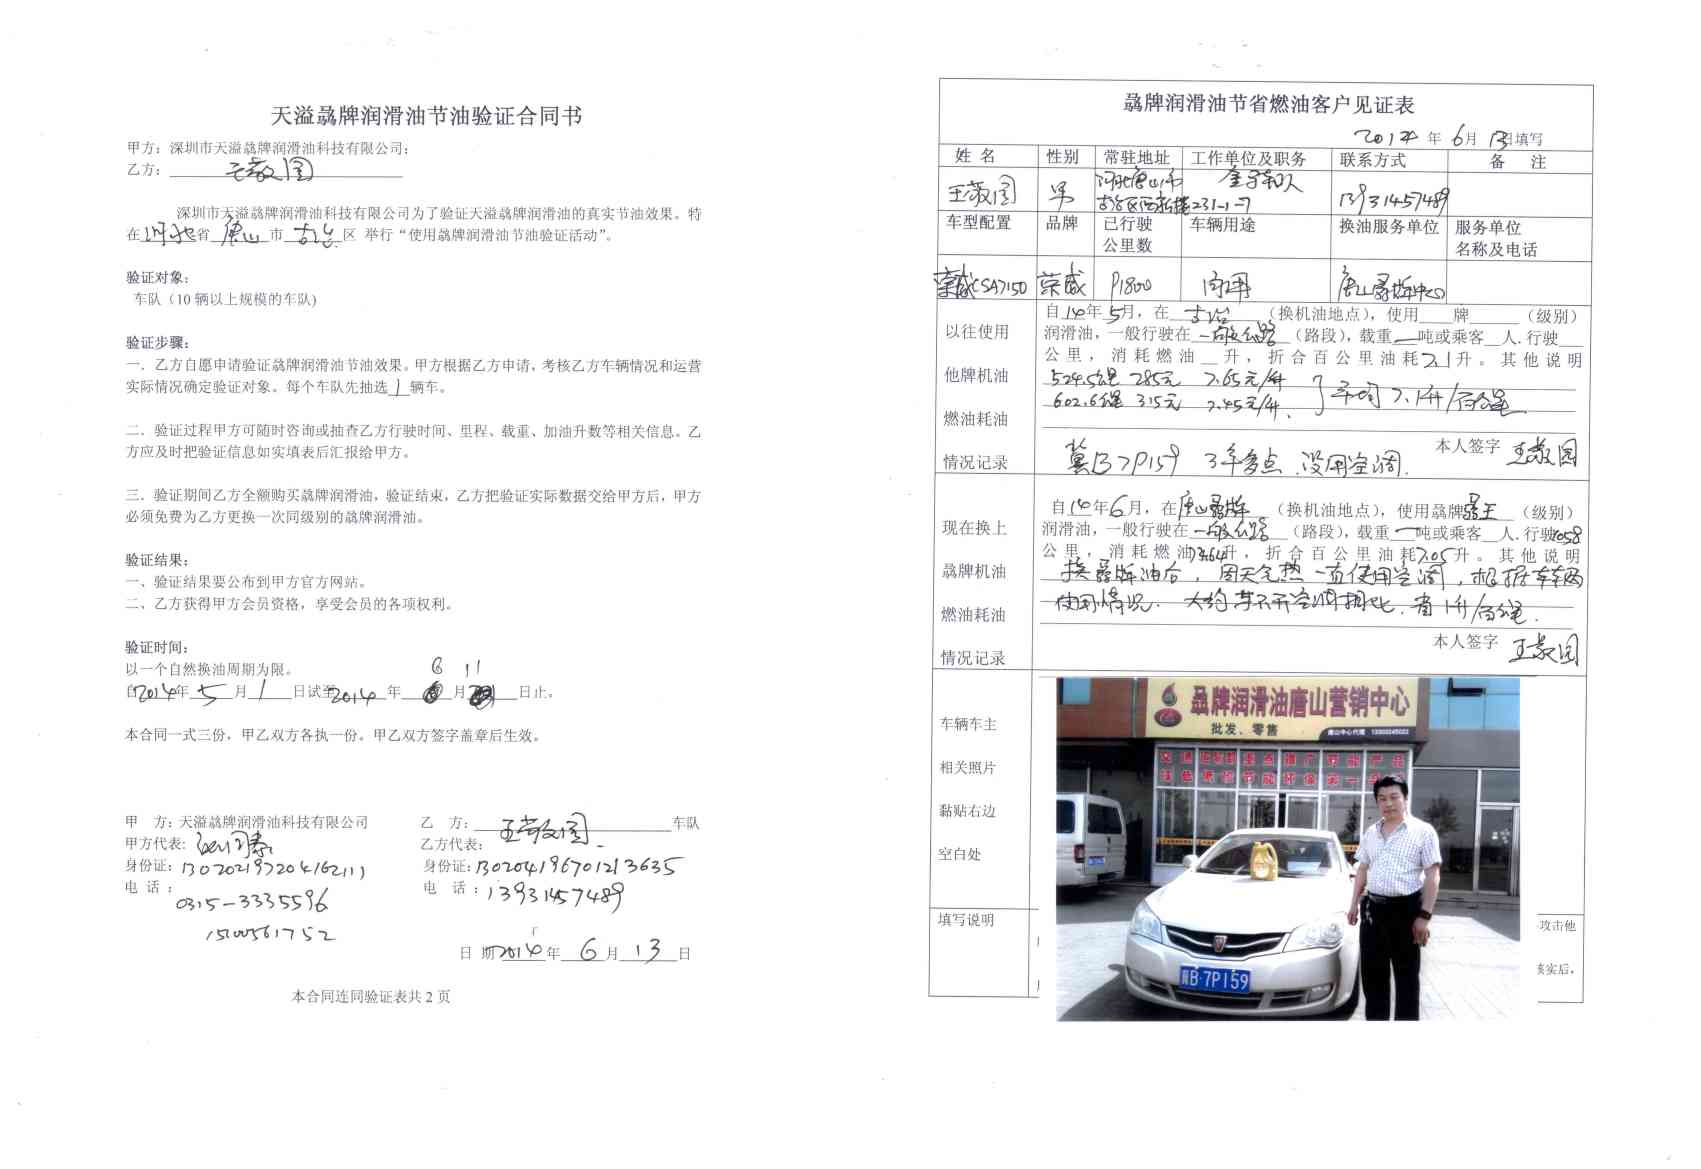 天溢骉牌润滑油节油验证合同书
甲方：深圳市天溢骉牌润滑油科技有限公司；
乙方：王敬国
深圳市天溢骉牌润滑油科技有限公司为了验证天溢骉牌润滑油的真实节油效果。特
在河北省唐山市古冶区 举行“使用骉牌润滑油节油验证活动”。
验证对象：
车队（10 辆以上规模的车队)
验证步骤：
一．乙方自愿申请验证骉牌润滑油节油效果。甲方根据乙方申请，考核乙方车辆情况和运营
实际情况确定验证对象。每个车队先抽选1辆车。
二．验证过程甲方可随时咨询或抽查乙方行驶时间、里程、载重、加油升数等相关信息。乙
方应及时把验证信息如实填表后汇报给甲方。
三．验证期间乙方全额购买骉牌润滑油，验证结束，乙方把验证实际数据交给甲方后，甲方
必须免费为乙方更换一次同级别的骉牌润滑油。
验证结果：
一、验证结果要公布到甲方官方网站。
二、乙方获得甲方会员资格，享受会员的各项权利。
验证时间：
以一个自然换油周期为限。
6 11
自2014年5月1日试至2014年 月 日止。
本合同一式三份，甲乙双方各执一份。甲乙双方签字盖章后生效。
甲 方：天溢骉牌润滑油科技有限公司
甲方代表：
身份证：130202197204162111
电 话：
0315-3335596
15100561752
乙 方：王敬国 车队
乙方代表：
身份证：130204196701213635
电 话：13931457489
日 期2014年6月13日
本合同连同验证表共 2 页
骉牌润滑油节省燃油客户见证表
2014 年 6月 13日填写
姓 名 性别 常驻地址 工作单位及职务 联系方式 备 注
王敬国 男 河北唐山市 13931457489
古冶区 231-1-7
车型配置 品牌 已行驶公里数 车辆用途 换油服务单位 服务单位名称及电话
荣威CSA7150 荣威 91800 自用 唐山骉牌中心
以往使用
他牌机油
燃油耗油
情况记录
自14年5月，在 古冶 （换机油地点），使用 牌 （级别）
润滑油，一般行驶在一般公路（路段），载重一吨或乘客 人．行驶
公里，消耗燃油 升，折合百公里油耗7.1升。其他说明
524.5公里 285元 7.65元/升
602.6公里 315元 7.45元/升
平均 7.1升/百公里
本人签字 王敬国
冀B7P159 3年多点 没用空调.
现在换上
骉牌机油
燃油耗油
情况记录
自14年6月，在唐山骉牌（换机油地点），使用骉牌骉王（级别）
润滑油，一般行驶在一般公路（路段），载重一吨或乘客 人．行驶1058
公里，消耗燃油74.64升，折合百公里油耗7.05升。其他说明
换骉牌油后，因天气热一直使用空调，根据车辆
使用情况．大约 不开空调相比．省1升/百公里．
本人签字 王敬国
车辆车主
相关照片
黏贴右边
空白处
骉牌润滑油唐山营销中心
批发、零售
冀B·7P159
填写说明
攻击他
核实后，